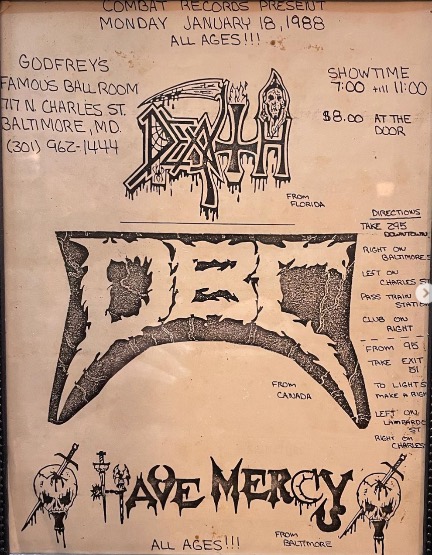 COMBAT RECORDS PRESENT
MONDAY JANUARY 18, 1988
ALL AGES!!!
GODFREY'S
FAMOUS BALLROOM
717 N CHARLES ST.
BALTIMORE, MD.
(301) 962-1444
SHOWTIME
7:00 till 11:00
$8.00 AT THE
DOOR
DEATH
FROM
FLORIDA
DBC
FROM
CANADA
DIRECTIONS
TAKE 295
DOWNTOWN
RIGHT ON
BALTIMORE
LEFT ON
CHARLES ST
PASS TRAIN
STATI
CLUB ON
RIGHT
FROM 95
TAKE EXIT
51
TO LIGHTS
MAKE A RIGH
LEFT ON
LAMBARD
ST
RIGHT ON
CHARLES
HAVE MERCY
FROM
BALTIMORE
ALL AGES!!!